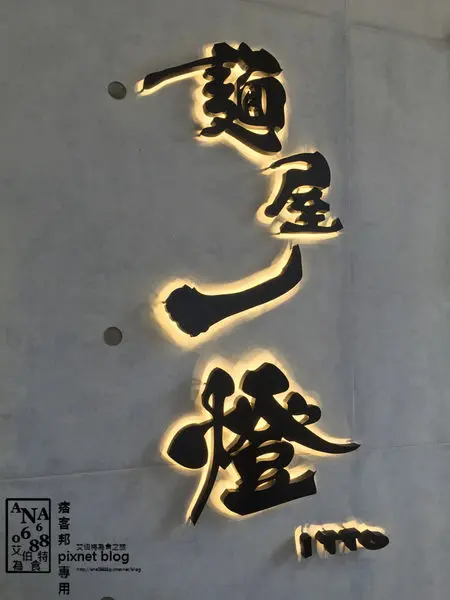 麺屋一燈
1990
ANA
0688
艾伯特
為食
痞客邦專用
艾伯特為食之旅
pixnet blog